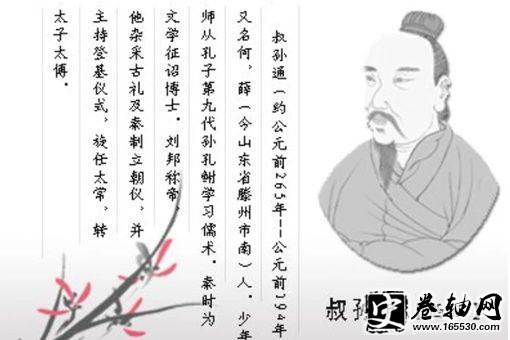 叔孙通（约公元前265年——公元前194年
又名何，薛（今山东省滕州市南）人。少年
师从孔子第九代孙孔鲋学习儒术。秦时为
文学征诏博士。刘邦称帝，
他杂采古礼及秦制立朝仪，并
主持登基仪式，旋任太常，转
太子太傅．
叔孙
史卷轴网
www.165530.com